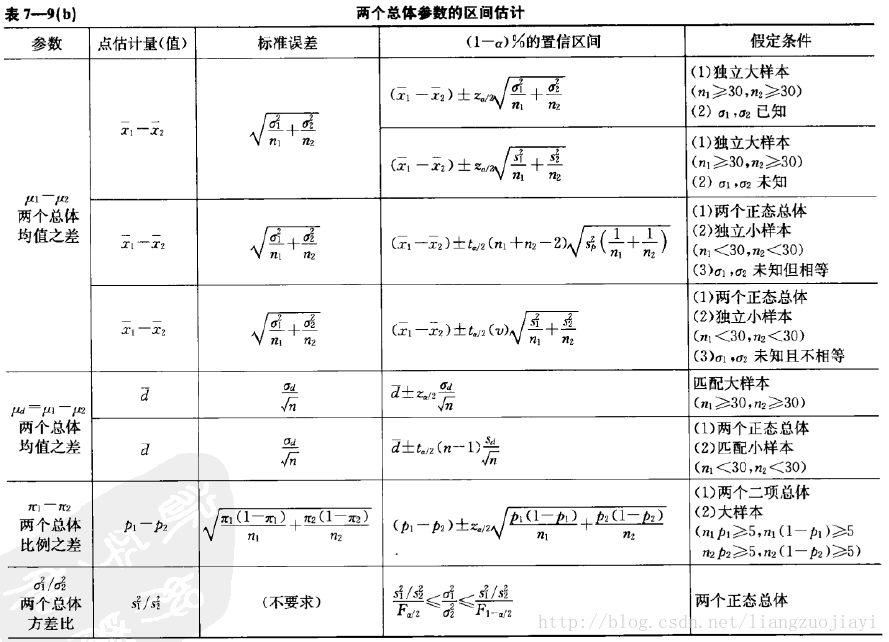 表7—9(b) 两个总体参数的区间估计
参数 点估计量(值) 标准误差 (1-α)%的置信区间 假定条件
μ1-μ2
两个总体
均值之差
x̄1-x̄2 √(σ1²/n1+σ2²/n2) (x̄1-x̄2)±zα/2√(σ1²/n1+σ2²/n2)
(1)独立大样本
(n1≥30,n2≥30)
(2) σ1,σ2 已知
(x̄1-x̄2)±zα/2√(s1²/n1+s2²/n2)
(1)独立大样本
(n1≥30,n2≥30)
(2) σ1,σ2 未知
x̄1-x̄2 √(σ1²/n1+σ2²/n2) (x̄1-x̄2)±tα/2(n1+n2-2)√(sp²(1/n1+1/n2))
(1)两个正态总体
(2)独立小样本
(n1<30,n2<30)
(3)σ1,σ2 未知但相等
x̄1-x̄2 √(σ1²/n1+σ2²/n2) (x̄1-x̄2)±tα/2(υ)√(s1²/n1+s2²/n2)
(1)两个正态总体
(2)独立小样本
(n1<30,n2<30)
(3)σ1,σ2 未知且不相等
μd=μ1-μ2
两个总体
均值之差
d̄ σd/√n d̄±zα/2 σd/√n
匹配大样本
(n1≥30,n2≥30)
d̄ σd/√n d̄±tα/2(n-1) sd/√n
(1)两个正态总体
(2)匹配小样本
(n1<30,n2<30)
π1-π2
两个总体
比例之差
p1-p2 √(π1(1-π1)/n1+π2(1-π2)/n2) (p1-p2)±zα/2√(p1(1-p1)/n1+p2(1-p2)/n2)
(1)两个二项总体
(2)大样本
(n1p1≥5,n1(1-p1)≥5
n2p2≥5,n2(1-p2)≥5)
σ1²/σ2²
两个总体
方差比
s1²/s2² (不要求) (s1²/s2²)/Fα/2≤σ1²/σ2²≤(s1²/s2²)/F1-α/2 两个正态总体
http://blog.csdn.net/liangzuojiayi